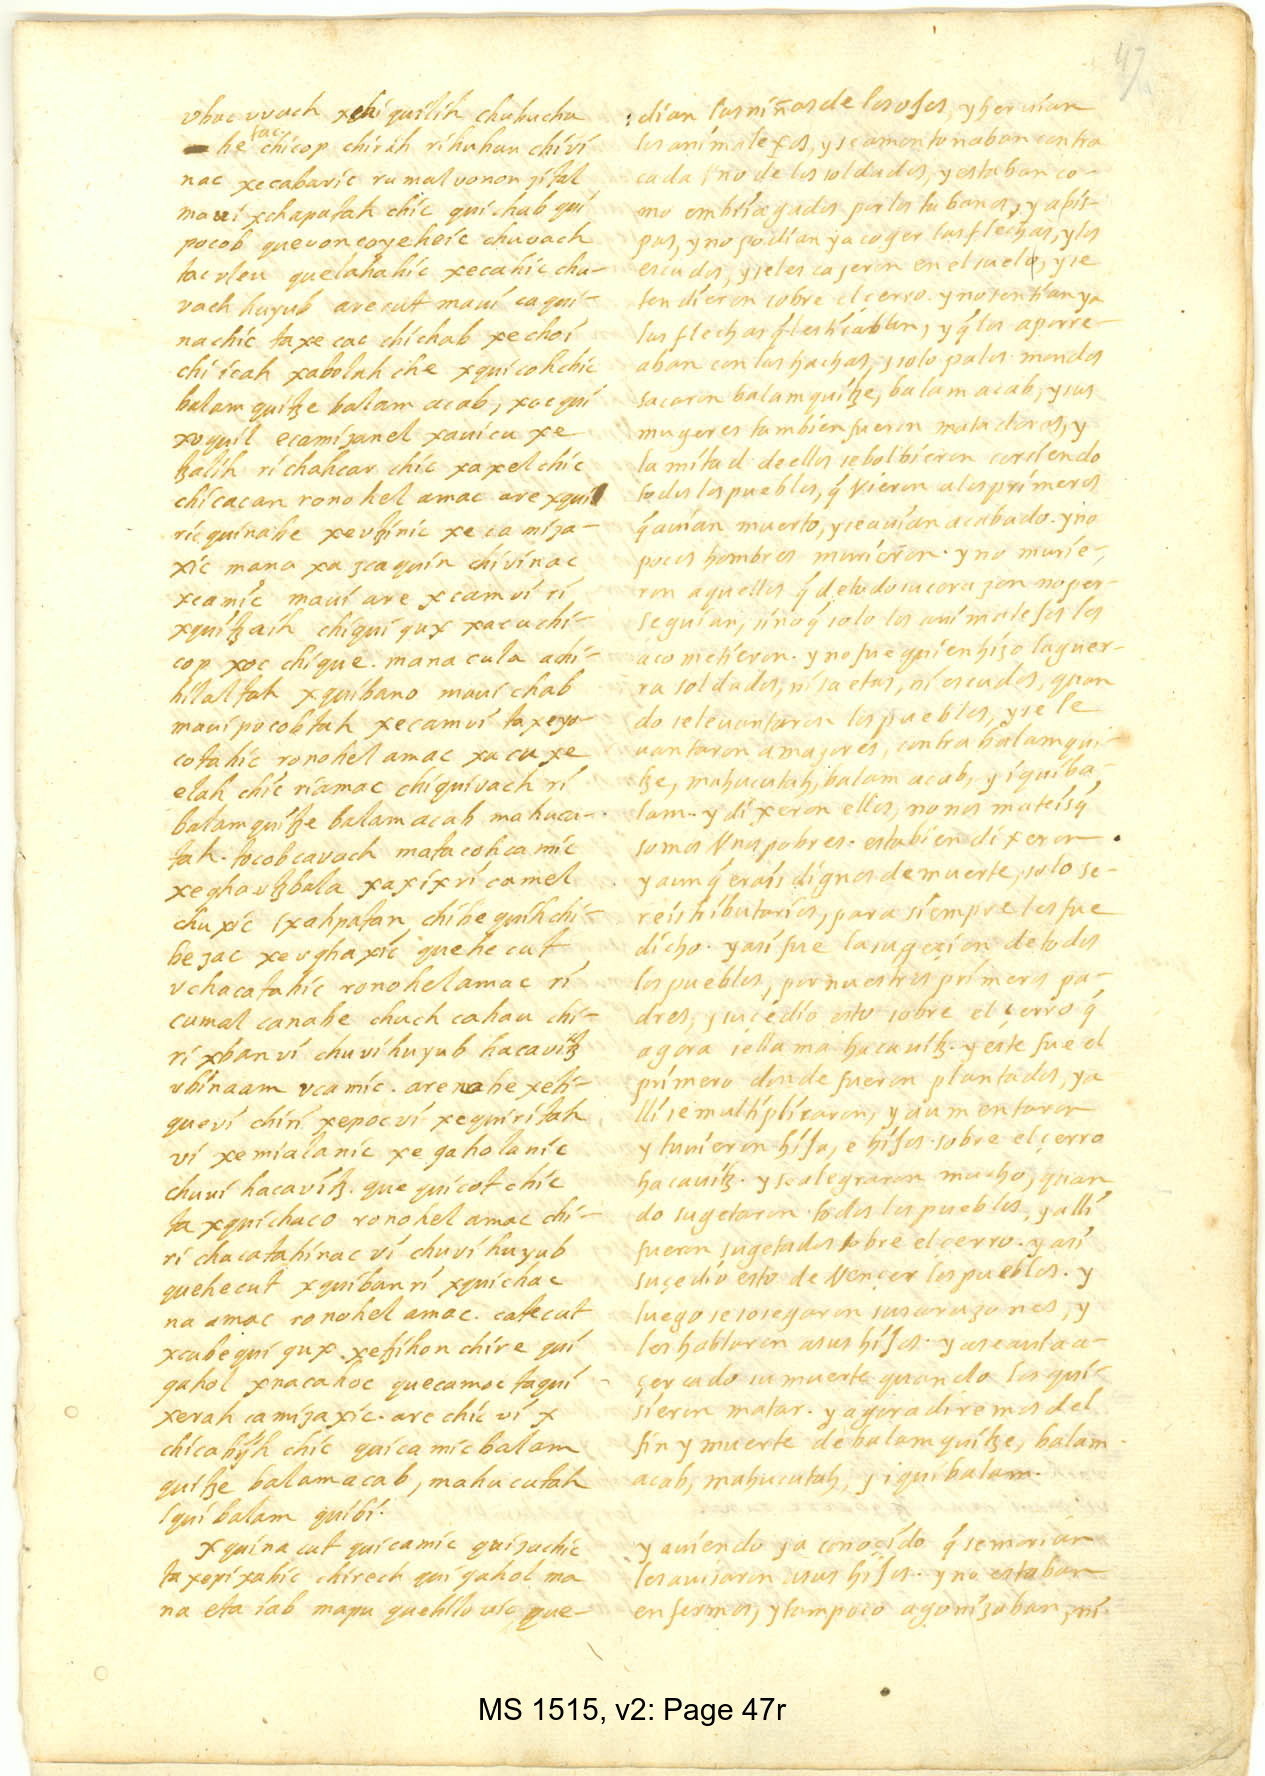 47
vbac vvach xchiquilih chuhucha
he tac chicop chirih rihuhun chivi
nac xecabaric rumal vonon zital
mavi xchapatah chic quichab qui
pocob quevoncoyeheic chuvach
tac vleu quelahahic xecahic chu-
vach huyub arecut mavi caqui-
nachic taxe cac chichab xechoi
chi icah xabolah che xquicohchic
balamquitze balam acab, xoc qui
xoquil ecamizanel xavicu xe
tzalih richahcar chic xaxelchic
chicacan ronohel amac are xqui
ricquinabe xevtzinic xecamiza-
xic mana xa zcaquin chivinac
xcamic mavi are xcamvi ri
xquitzaih chiquiqux xacuchi-
cop xoc chique. mana cula achi-
hilaltah xquibano maui chab
mavipocobtah xecamvi taxeyo-
cotahic ronohel amac xacuxe
elah chic riamac chiquivach ri
balamquitze balamacab mahucu-
tah. tocobcavach matacohcamic
xecha vtzbala xaxix ri camel
chuxic ixahpatan chibequihchi-
bezac xevghaxic quehecut
vchacatahic ronohelamac ri
cumal canabe chuch cahau chi-
ri xbanvi chuvihuyub hacavitz
vbinaam vcamic. arenabe xeti-
quevi chiri xepocvi xequiritah
vi xemialanic xegaholanic
chuvi hacavitz. que quicotchic
ta xquichaco ronohel amac chi-
ri chacatahinac vi chuvi huyub
quehecut xquiban ri xquichac
na amac ronohel amac. catecut
xcubequi qux. xetzihon chire qui
gahol xnacahoc quecamoc taqui
xerah camizaxic. are chic vi x
chicabijh chic quicamic balam
quitze balamacab, mahucutah
Iquibalam quibi.
xquina cut quicamic quizachic
ta xepixabic chirech qui gahol ma
na eta iab mapu quehilouic, que-
dian las niñas de los ojos, y herian
los animalexos, y se amontonaban contra
cada Vno de los soldados, y estaban co-
mo embriagados por los tabanos, y abis-
pas, y no podian ya coger las flechas, y los
escudos, y seles cajeron en el suelo, y se
tendieron sobre el cerro. y no sentian ya
las flechas q̃ les tiraban, y q̃ los aporre-
aban con las hachas, y solo palos mondos
sacaron balamquitze, balam acab, y sus
mugeres tambien fueron matadoras, y
la mitad de ellos se bolbieron corriendo
todos los pueblos, q̃ Vieron a los primeros
q̃ auian muerto, y se auian acabado. y no
pocos hombres murieron. y no murie-
ron aquellos q̃ de todo su corazon no per-
seguian, sino q̃ solo los animalejos los
acometieron. y no fue quien hizo laguer-
ra soldados, ni saetas, ni escudos, quan
do se levantaron los pueblos, y se le
vantaron amajores, contra balamqui-
tze, mahucutah, balam acab, y iquiba-
lam. y dixeron ellos, no nos mateis q̃
somos Vnos pobres. esta bien dixeron
y aunq̃ erais dignos de muerte, solo se-
reis tributarios, para siempre les fue
dicho. y asi fue la sugezion de todos
los pueblos, por nuestros primeros pa-
dres, y sucedio esto sobre el çerro q̃
agora se llama hacavitz. y este fue el
primero donde fueron plantados, y a-
lli se multiplicaron, y aumentaron
y tuvieron hija, e hijos. sobre el çerro
hacauitz. y se alegraron mucho, quan
do sugetaron todos los pueblos, y alli
fueron sugetados sobre el cerro. y asi
suçedio esto de Vençer los pueblos. y
luego se sosegaron sus corazones, y
les hablaron a sus hijos. y ase auia a-
çercado su muerte quando los qui-
sieron matar. y agora diremos del
fin y muerte de balamquitze, balam
acab, mahucutah, y iquibalam.
y auiendo ya conocido q̃ se morian
les auisaron a sus hijos. y no estaban
enfermos, y tampoco agonizaban, ni
MS 1515, v2: Page 47r